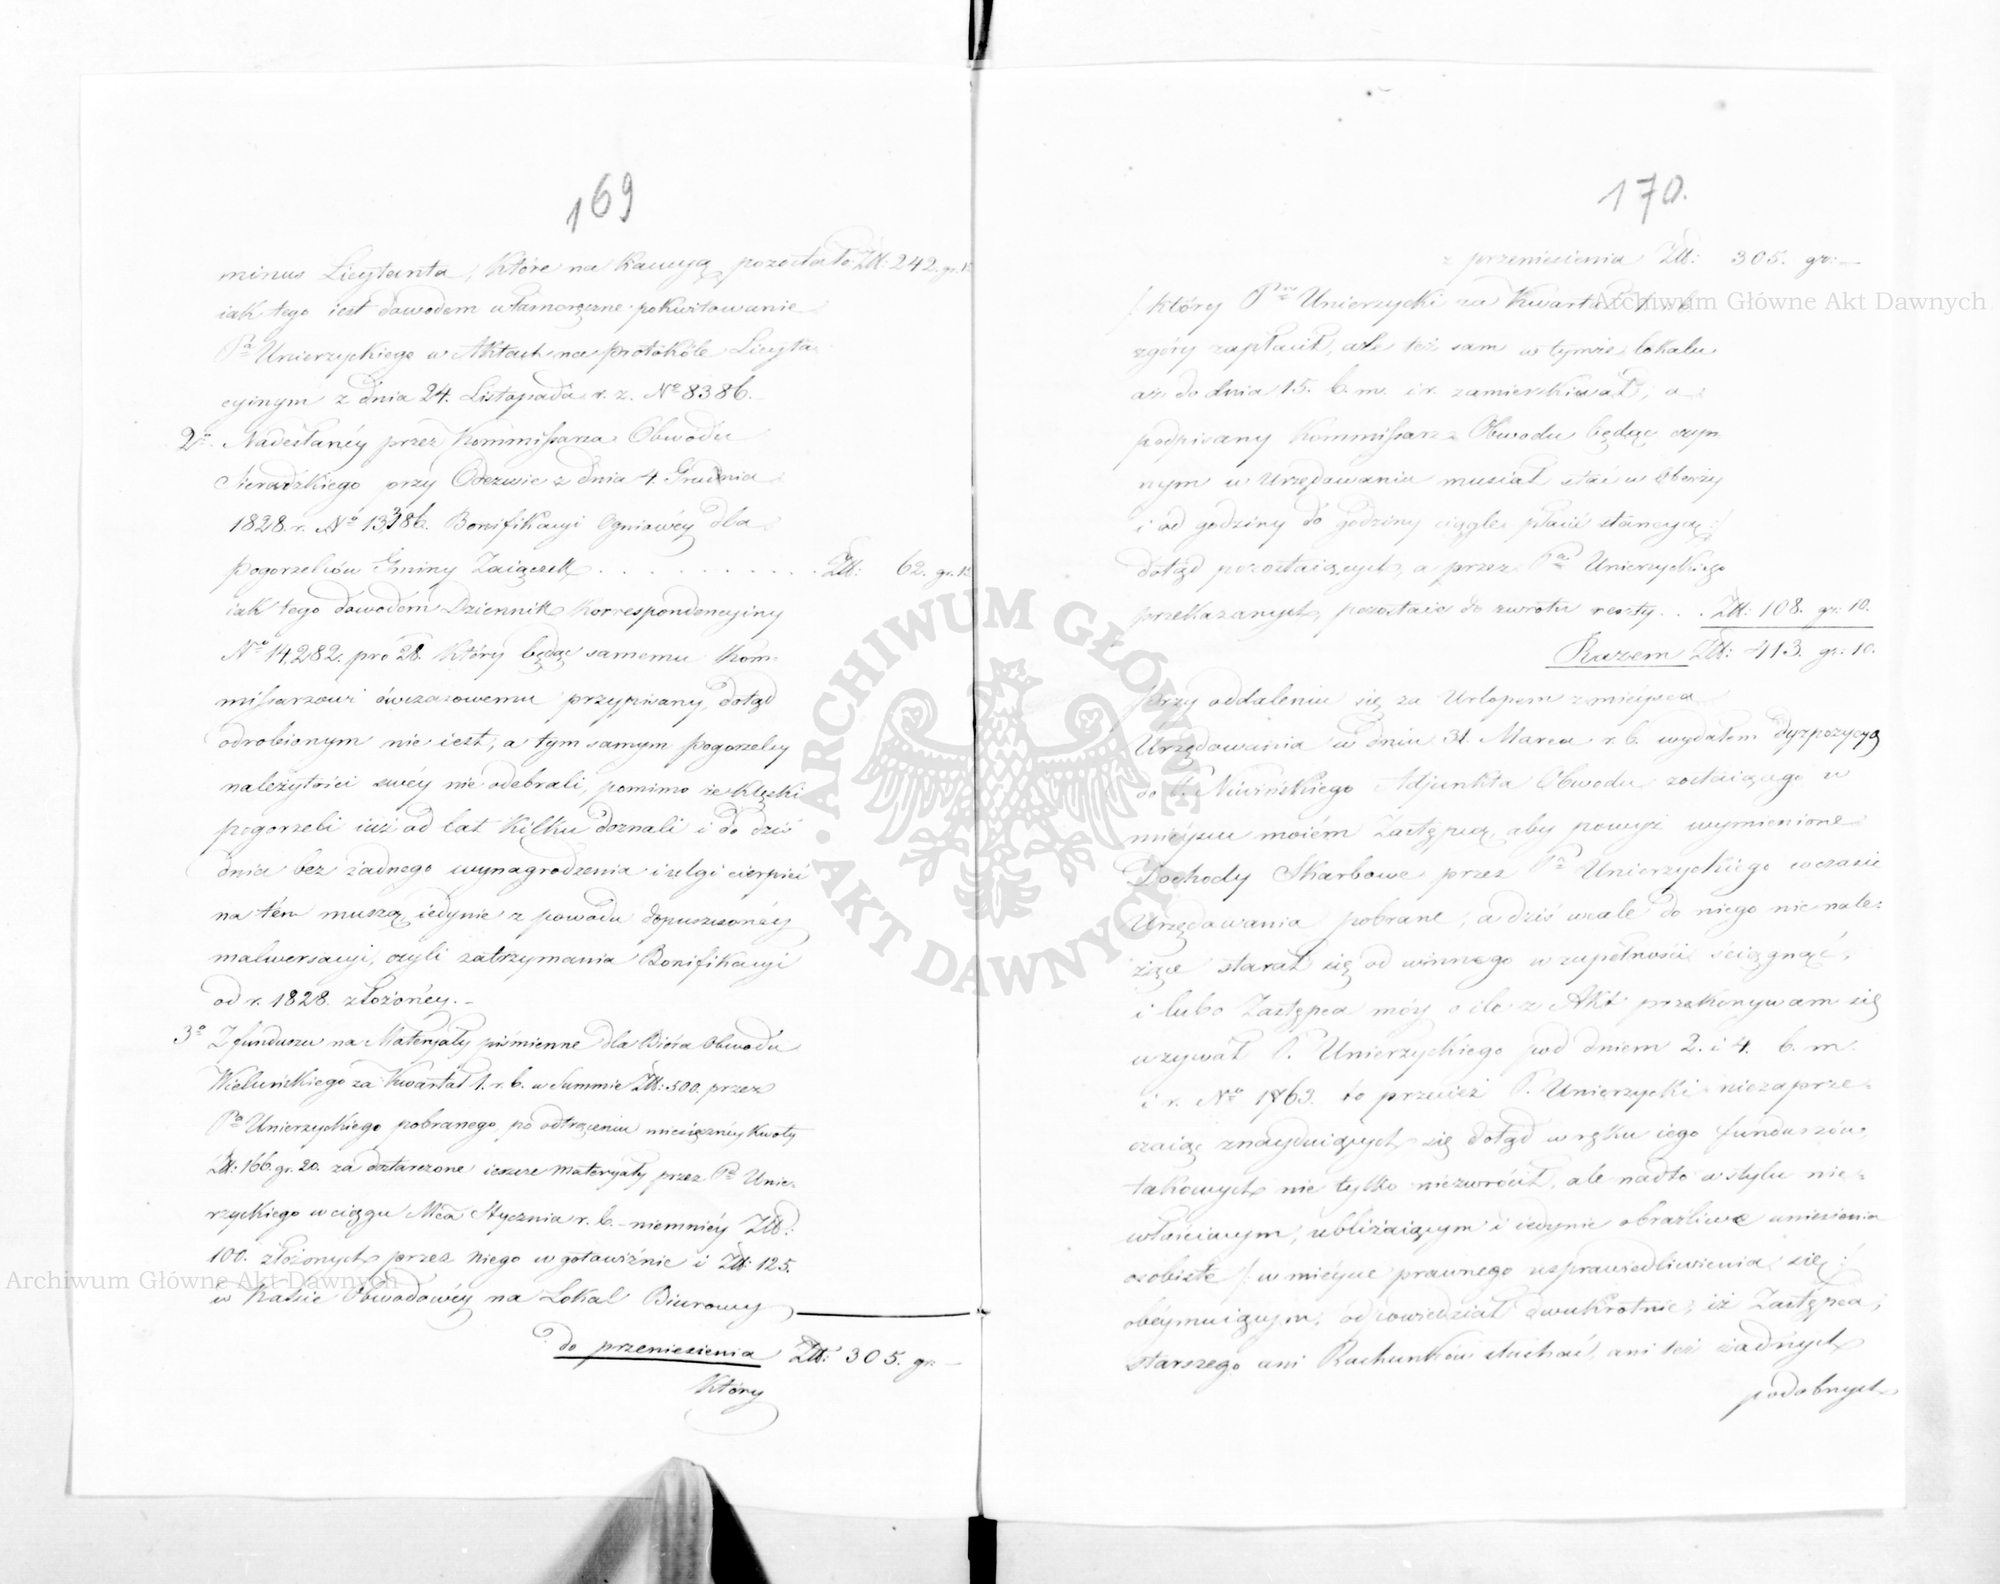 169
minus Licytanta, które na Kaucyą pozostało Złt: 242. gr. 1
iak tego iest dowodem własnoręczne pokwitowanie
Pa Unierzyckiego w Aktach na protokóle Licyta-
cyinym z dnia 24. Listopada r. z. No 8386.
2o. Nadesłanéy przez Kommissarza Obwodu
Sieradzkiego przy Odezwie z dnia 4. Grudnia
1828. r. No 13,386. Bonifikacyi Ogniowéy dla
pogorzelców Gminy Zaiączek . . . . . . . . . . Złt: 62. gr. 1
iak tego dowodem Dziennik Korrespondencyiny
No 14,282. pro 28. który będąc samemu Kom-
missarzowi ówczasowemu przypisany, dotąd
odrobionym nie iest, a tym samym pogorzelcy
należytości swéy nie odebrali, pomimo że klęski
pogorzeli iuż od lat kilku doznali i do dziś
dnia bez żadnego wynagrodzenia i ulgi cierpieć
na tém muszą, iedynie z powodu dopuszczonéy
malwersacyi, czyli zatrzymania Bonifikacyi
od r. 1828. złożonéy. –
3o Z funduszu na Materyały piśmienne dla Bióra Obwodu
Wieluńskiego za Kwartał 1. r. b. w Summie Złt: 500. przez
Pa Unierzyckiego pobranego, po odtrąceniu miesięcznéy kwoty
Złt: 166. gr. 20. za dostarczone ieszcze materyały przez Pa Unie-
rzyckiego w ciągu Mca Stycznia r. b. – niemniéy Złt:
100. złożonych przez niego w gotowiźnie i Złt: 125.
w Kassie Obwodowéy na Lokal Biurowy
do przeniesienia Złt: 305. gr. –
który
170.
z przeniesienia Złt: 305. gr: –
/: który Pan Unierzycki za Kwartał
zgóry zapłacił, ale też sam w tymże lokalu
aż do dnia 15. b. m. i r. zamieszkiwał, a
podpisany Kommissarz Obwodu będąc czyn-
nym w Urzędowaniu musiał stać w Oberży
i od godziny do godziny ciągle płacić stancyą :/
dotąd pozostaiących, a przez Pa Unierzyckiego
przekazanych, pozostaie do zwrotu reszty . . . Złt: 108. gr: 10.
Razem Złt: 413. gr: 10.
Przy oddaleniu się za Urlopem z mieysca
Urzędowania w dniu 31. Marca r. b. wydałem dyspozycyą
do P. Niwińskiego Adjunkta Obwodu zostaiącego w
mieyscu moiém Zastępcą, aby powyż wymienione
Dochody Skarbowe przez Pa Unierzyckiego w czasie
Urzędowania pobrane, a dziś wcale do niego nie nale-
żące starał się od winnego w zupełności ściągnąć,
i lubo Zastępca móy o ile z Akt przekonywam się
wzywał P. Unierzyckiego pod dniem 2. i 4. b. m.
i r. No 1763. to przecież P. Unierzycki niezaprze-
czaiąc znayduiących się dotąd w ręku iego funduszów
takowych nie tylko niezwrócił, ale nadto w stylu nie-
właściwym, ubliżaiącym i iedynie obraźliwe uniesienia
osobiste /: w mieysce prawnego usprawiedliwienia się :/
obéymuiącym, odpowiedział dwukrotnie, iż Zastępca,
starszego ani Rachunków słuchać, ani też żadnych
podobnych
Archiwum Główne Akt Dawnych
Archiwum Główne Akt Dawnych
ARCHIWUM GŁÓWNE • AKT DAWNYCH •